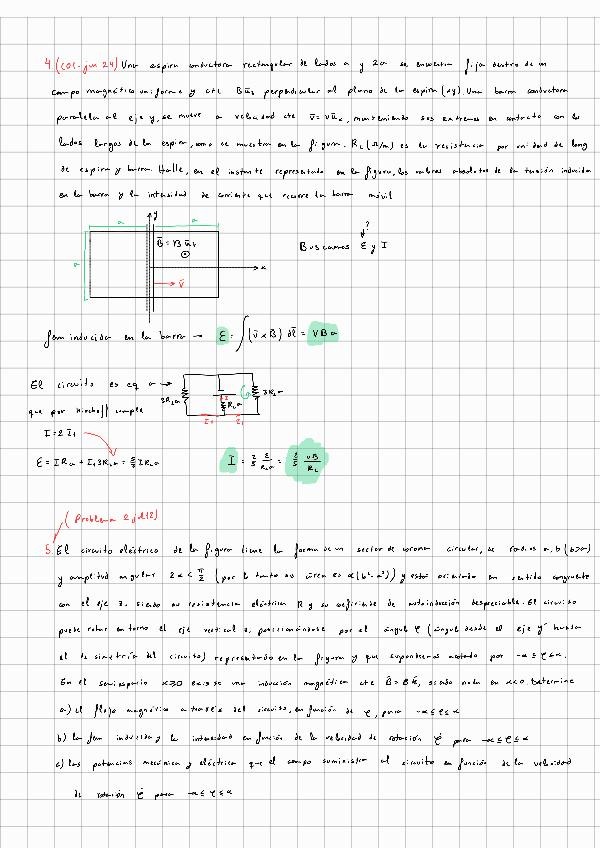 4. (col. jun 24) Una espira conductora rectangular de lados a y 2a se encuentra fija dentro de un
campo magnético uniforme y cte B u̅z perpendicular al plano de la espira (xy). Una barra conductora
paralela al eje y, se mueve a velocidad cte v̅ = v u̅x, manteniendo sus extremos en contacto con los
lados largos de la espira, como se muestra en la figura. RL (Ω/m) es la resistencia por unidad de long
de espira y barra. Halle, en el instante representado en la figura, los valores absolutos de la tensión inducida
en la barra y la intensidad de corriente que recorre la barra móvil
a
y
a
B̅ = B u̅z
a
x
v̅
Buscamos ε y I
fem inducida en la barra → ε = ∫ (v̅ x B̅) dl̅ = VBa
El circuito es eq a →
3RLa
RLa
3RLa
I
I1
I1
que por Kirchoff cumple
I = 2 I1
ε = I RLa + I1 3RLa = 5/2 I RLa
I = 2/5 ε/RLa = 2/5 vB/RL
(Problema 2 jul 12)
5. El circuito eléctrico de la figura tiene la forma de un sector de corona circular, de radios a, b (b>a)
y amplitud angular 2α < π/2 (por lo tanto su área es α(b²-a²)) y está orientado en sentido congruente
con el eje z, siendo su resistencia eléctrica R y su coeficiente de autoinducción despreciable. El circuito
puede rotar en torno al eje vertical z, posicionándose por el ángulo φ (ángulo desde el eje y hasta
el de simetría del circuito) representado en la figura y que supondremos acotado por -α ≤ φ ≤ α.
En el semiespacio x≥0 existe una inducción magnética cte B̅ = B k̅, siendo nula en x<0. Determine
a) el flujo magnético a través del circuito, en función de φ, para -α ≤ φ ≤ α
b) la fem inducida y la intensidad en función de la velocidad de rotación φ̇ para -α ≤ φ ≤ α
c) las potencias mecánica y eléctrica que el campo suministra al circuito en función de la velocidad
de rotación φ̇ para -α ≤ φ ≤ α